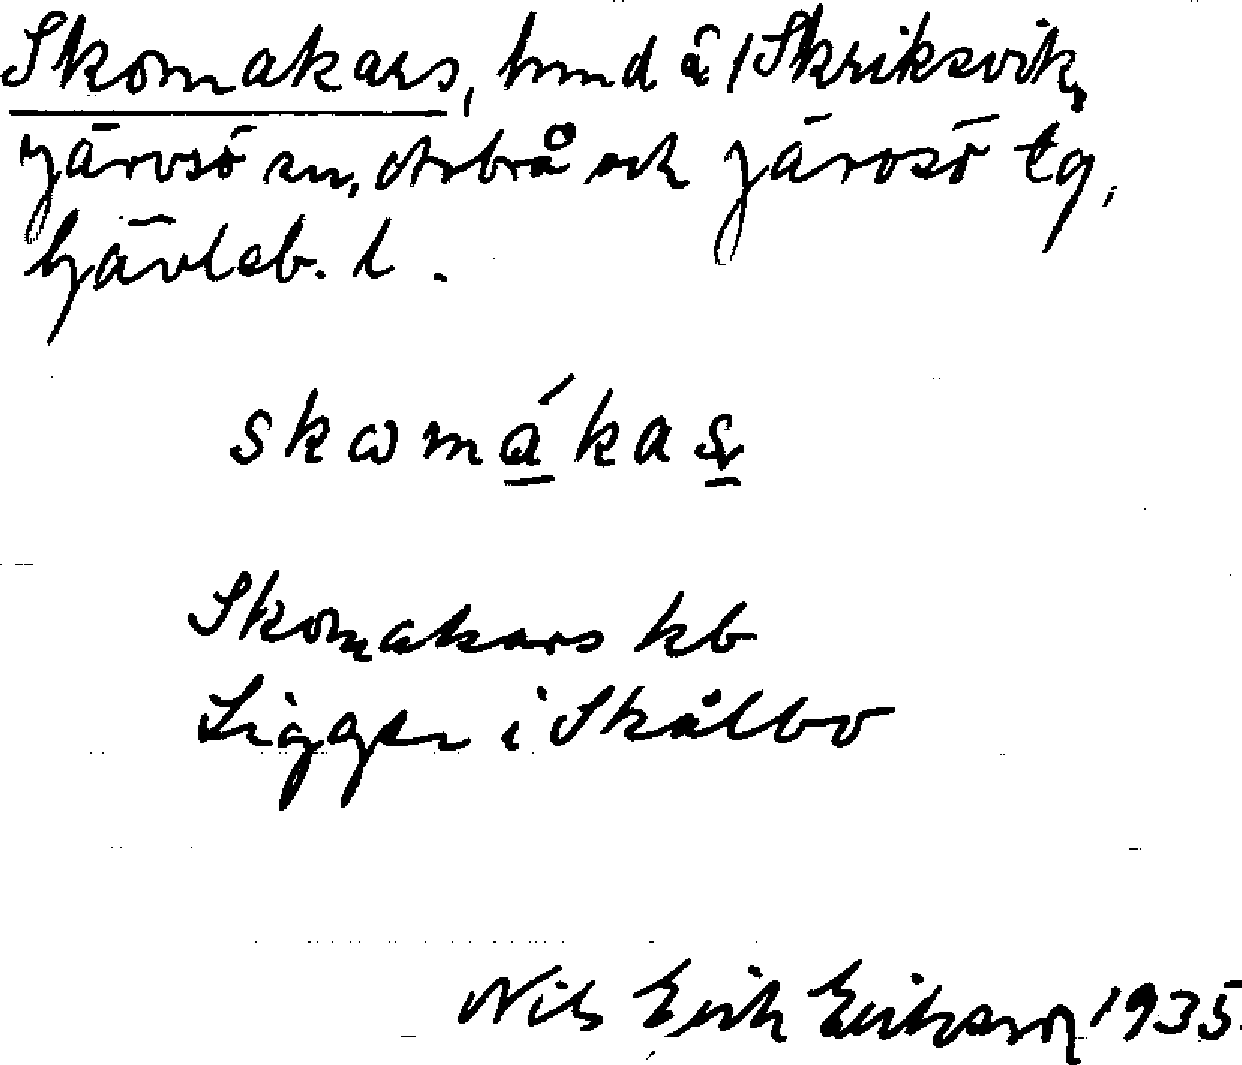 Skomakars, hmd å 1 Skriksvik,
Järvsö sn, Arbrå och Järvsö tg,
Gävleb. l.
skωmákas̱
Skomakars kb
Ligger i Skålbo
Nils Erik Eriksson 1935